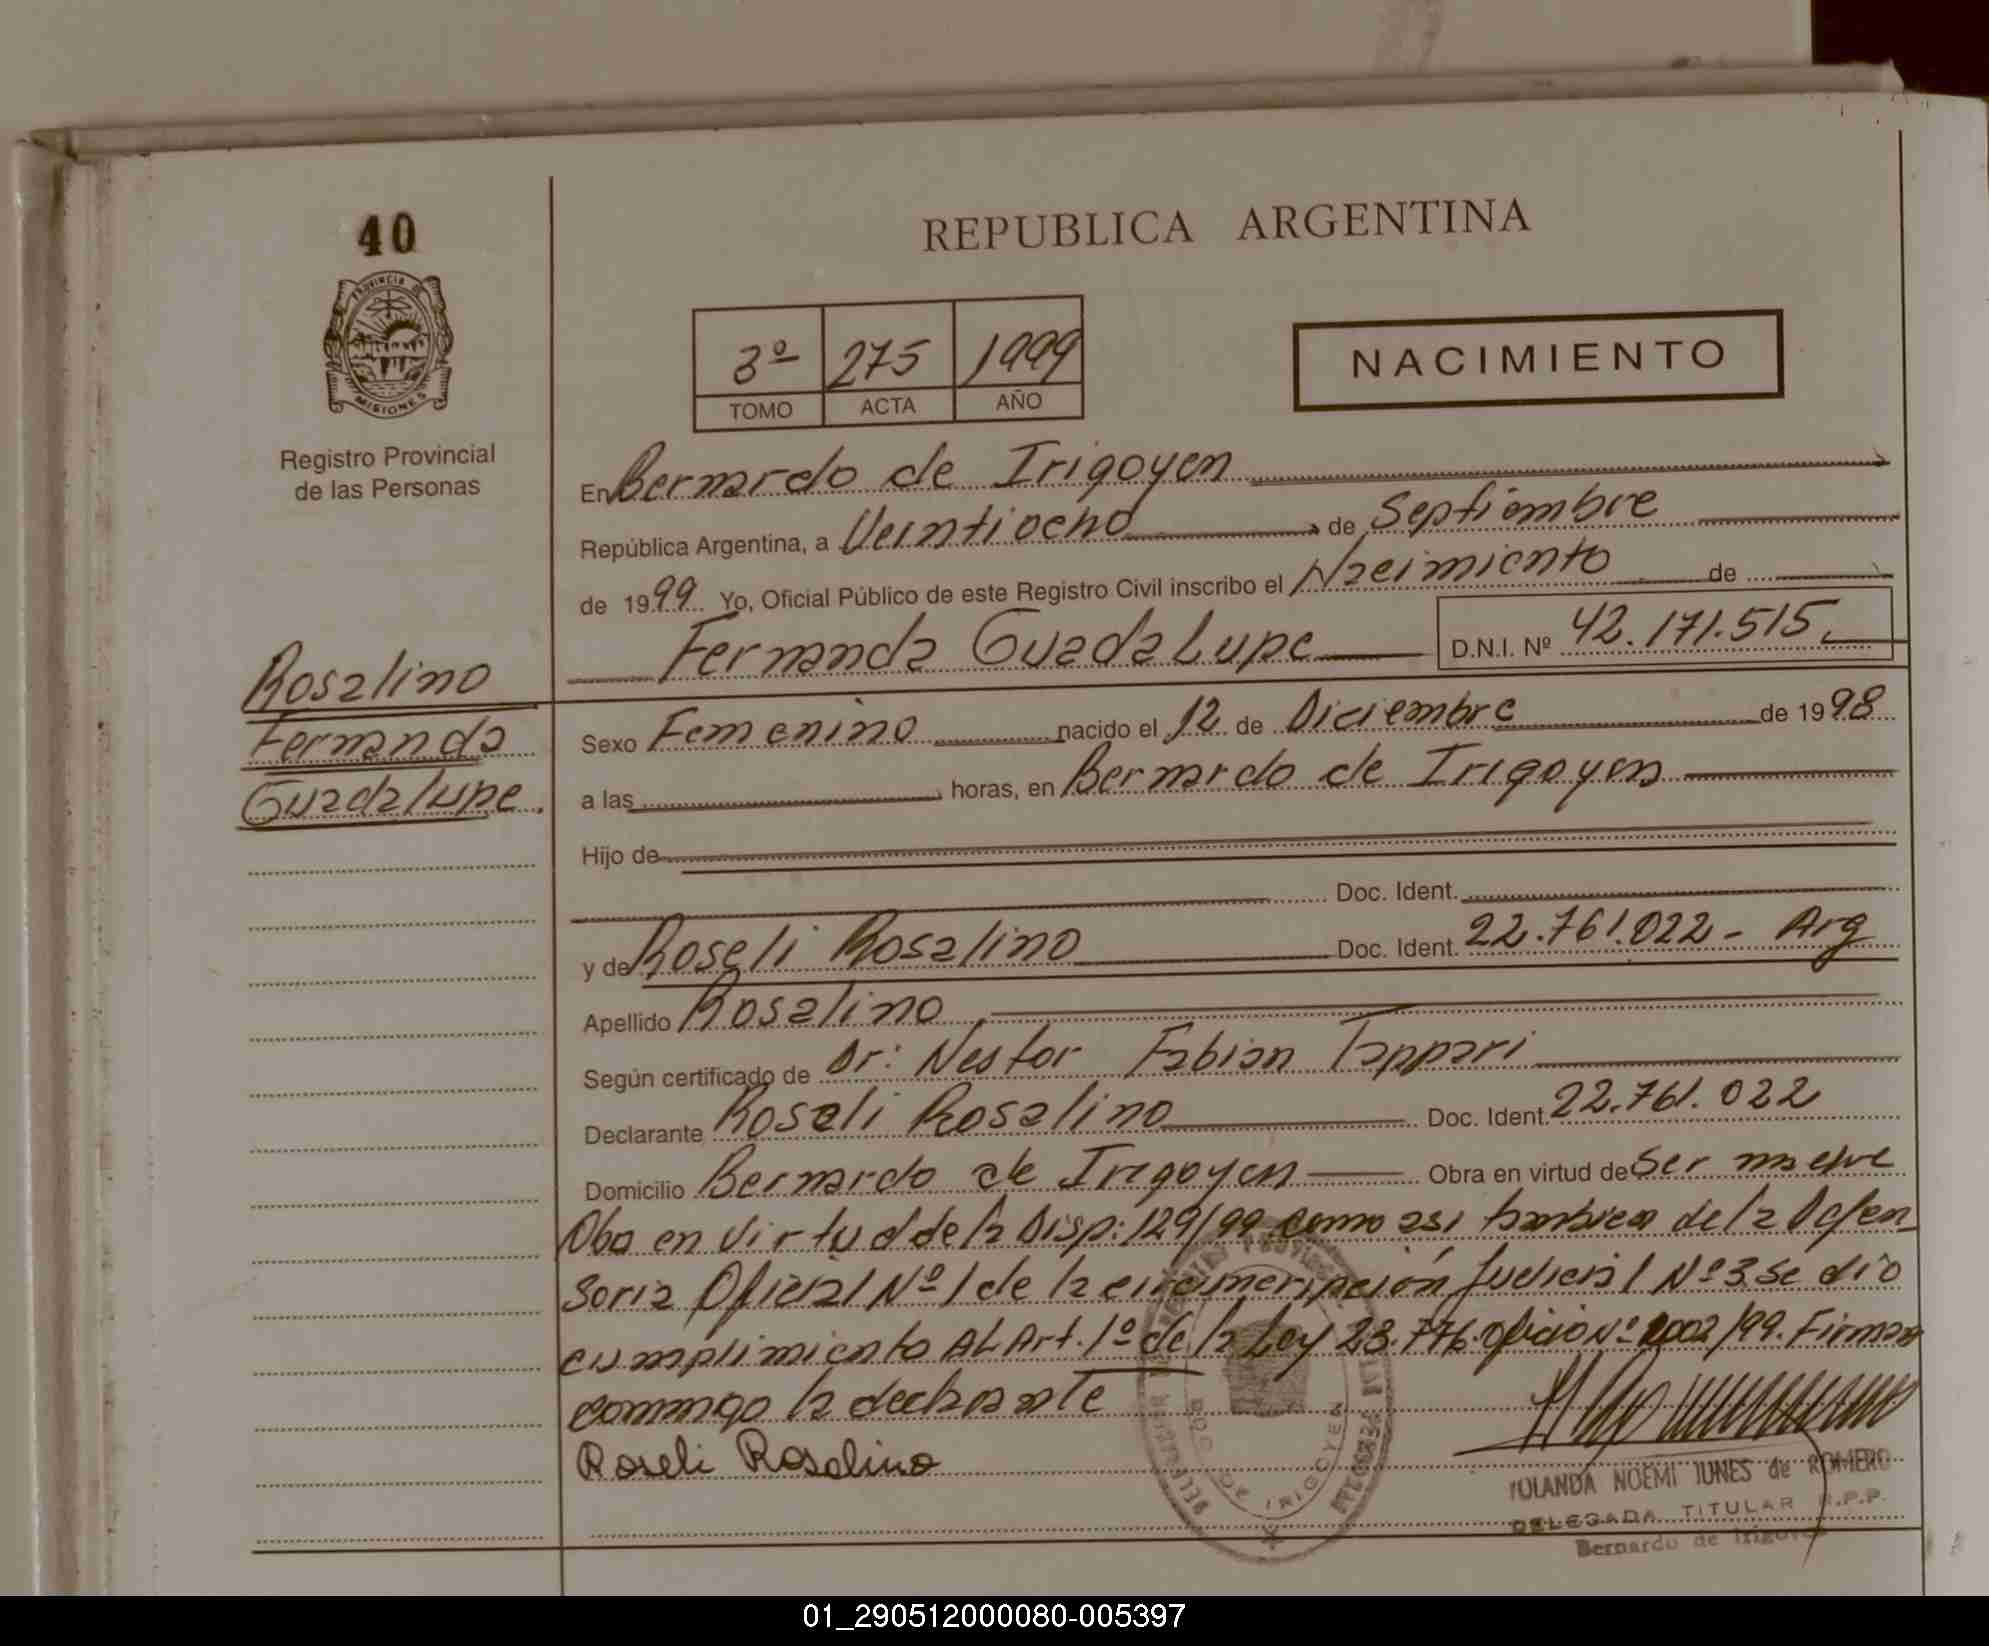 40
REPUBLICA ARGENTINA
PROVINCIA DE
MISIONES
Registro Provincial
de las Personas
3º 275 1999
TOMO ACTA AÑO
NACIMIENTO
En Bernardo de Irigoyen
República Argentina, a Veintiocho de Septiembre
de 1999 Yo, Oficial Público de este Registro Civil inscribo el Nacimiento de
Fernanda Guadalupe D.N.I. Nº 42.171.515.
Rosalino
Fernanda
Guadalupe.
Sexo Femenino nacido el 12 de Diciembre de 1998
a las horas, en Bernardo de Irigoyen
Hijo de
Doc. Ident.
y de Roseli Rosalino Doc. Ident. 22.761.022 - Arg
Apellido Rosalino
Según certificado de Dr: Nestor Fabian Tappari
Declarante Roseli Rosalino Doc. Ident. 22.761.022
Domicilio Bernardo de Irigoyen Obra en virtud de Ser madre
Oba en Virtud de la Disp: 129/99 como asi tambien de la Defen-
soria Oficial Nº 1 de la circunscripción Judicial Nº 3 se dió
cumplimiento AL Art. 1º de la Ley 23.776. Oficio Nº 2002/99. Firman
conmigo la declarante
Roseli Rosalino
BDO. DE IRIGOYEN
YOLANDA NOEMI IUNES de ROMERO
DELEGADA TITULAR R.P.P.
Bernardo de Irigoyen
01_290512000080-005397